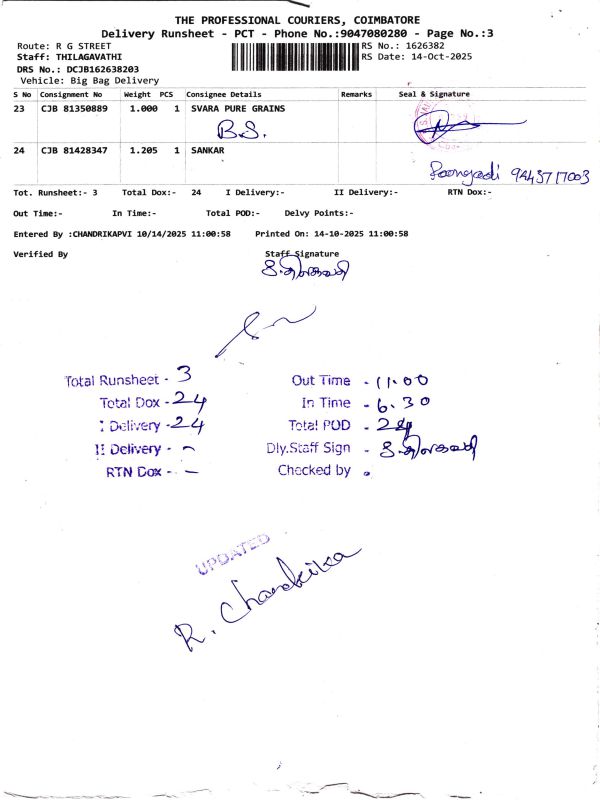 THE PROFESSIONAL COURIERS, COIMBATORE
Delivery Runsheet - PCT - Phone No.:9047080280 - Page No.:3
Route: R G STREET RS No.: 1626382
Staff: THILAGAVATHI RS Date: 14-Oct-2025
DRS No.: DCJB162638203
Vehicle: Big Bag Delivery
S No Consignment No Weight PCS Consignee Details Remarks Seal & Signature
23 CJB 81350889 1.000 1 SVARA PURE GRAINS
B.S.
24 CJB 81428347 1.205 1 SANKAR
9443717003
Tot. Runsheet:- 3 Total Dox:- 24 I Delivery:- II Delivery:- RTN Dox:-
Out Time:- In Time:- Total POD:- Delvy Points:-
Entered By :CHANDRIKAPVI 10/14/2025 11:00:58 Printed On: 14-10-2025 11:00:58
Verified By Staff Signature
Total Runsheet - 3 Out Time - 11.00
Total Dox - 24 In Time - 6.30
I Delivery - 24 Total POD - 24
II Delivery - - Dly.Staff Sign -
RTN Dox - - Checked by -
UPDATED
R. Chandrika